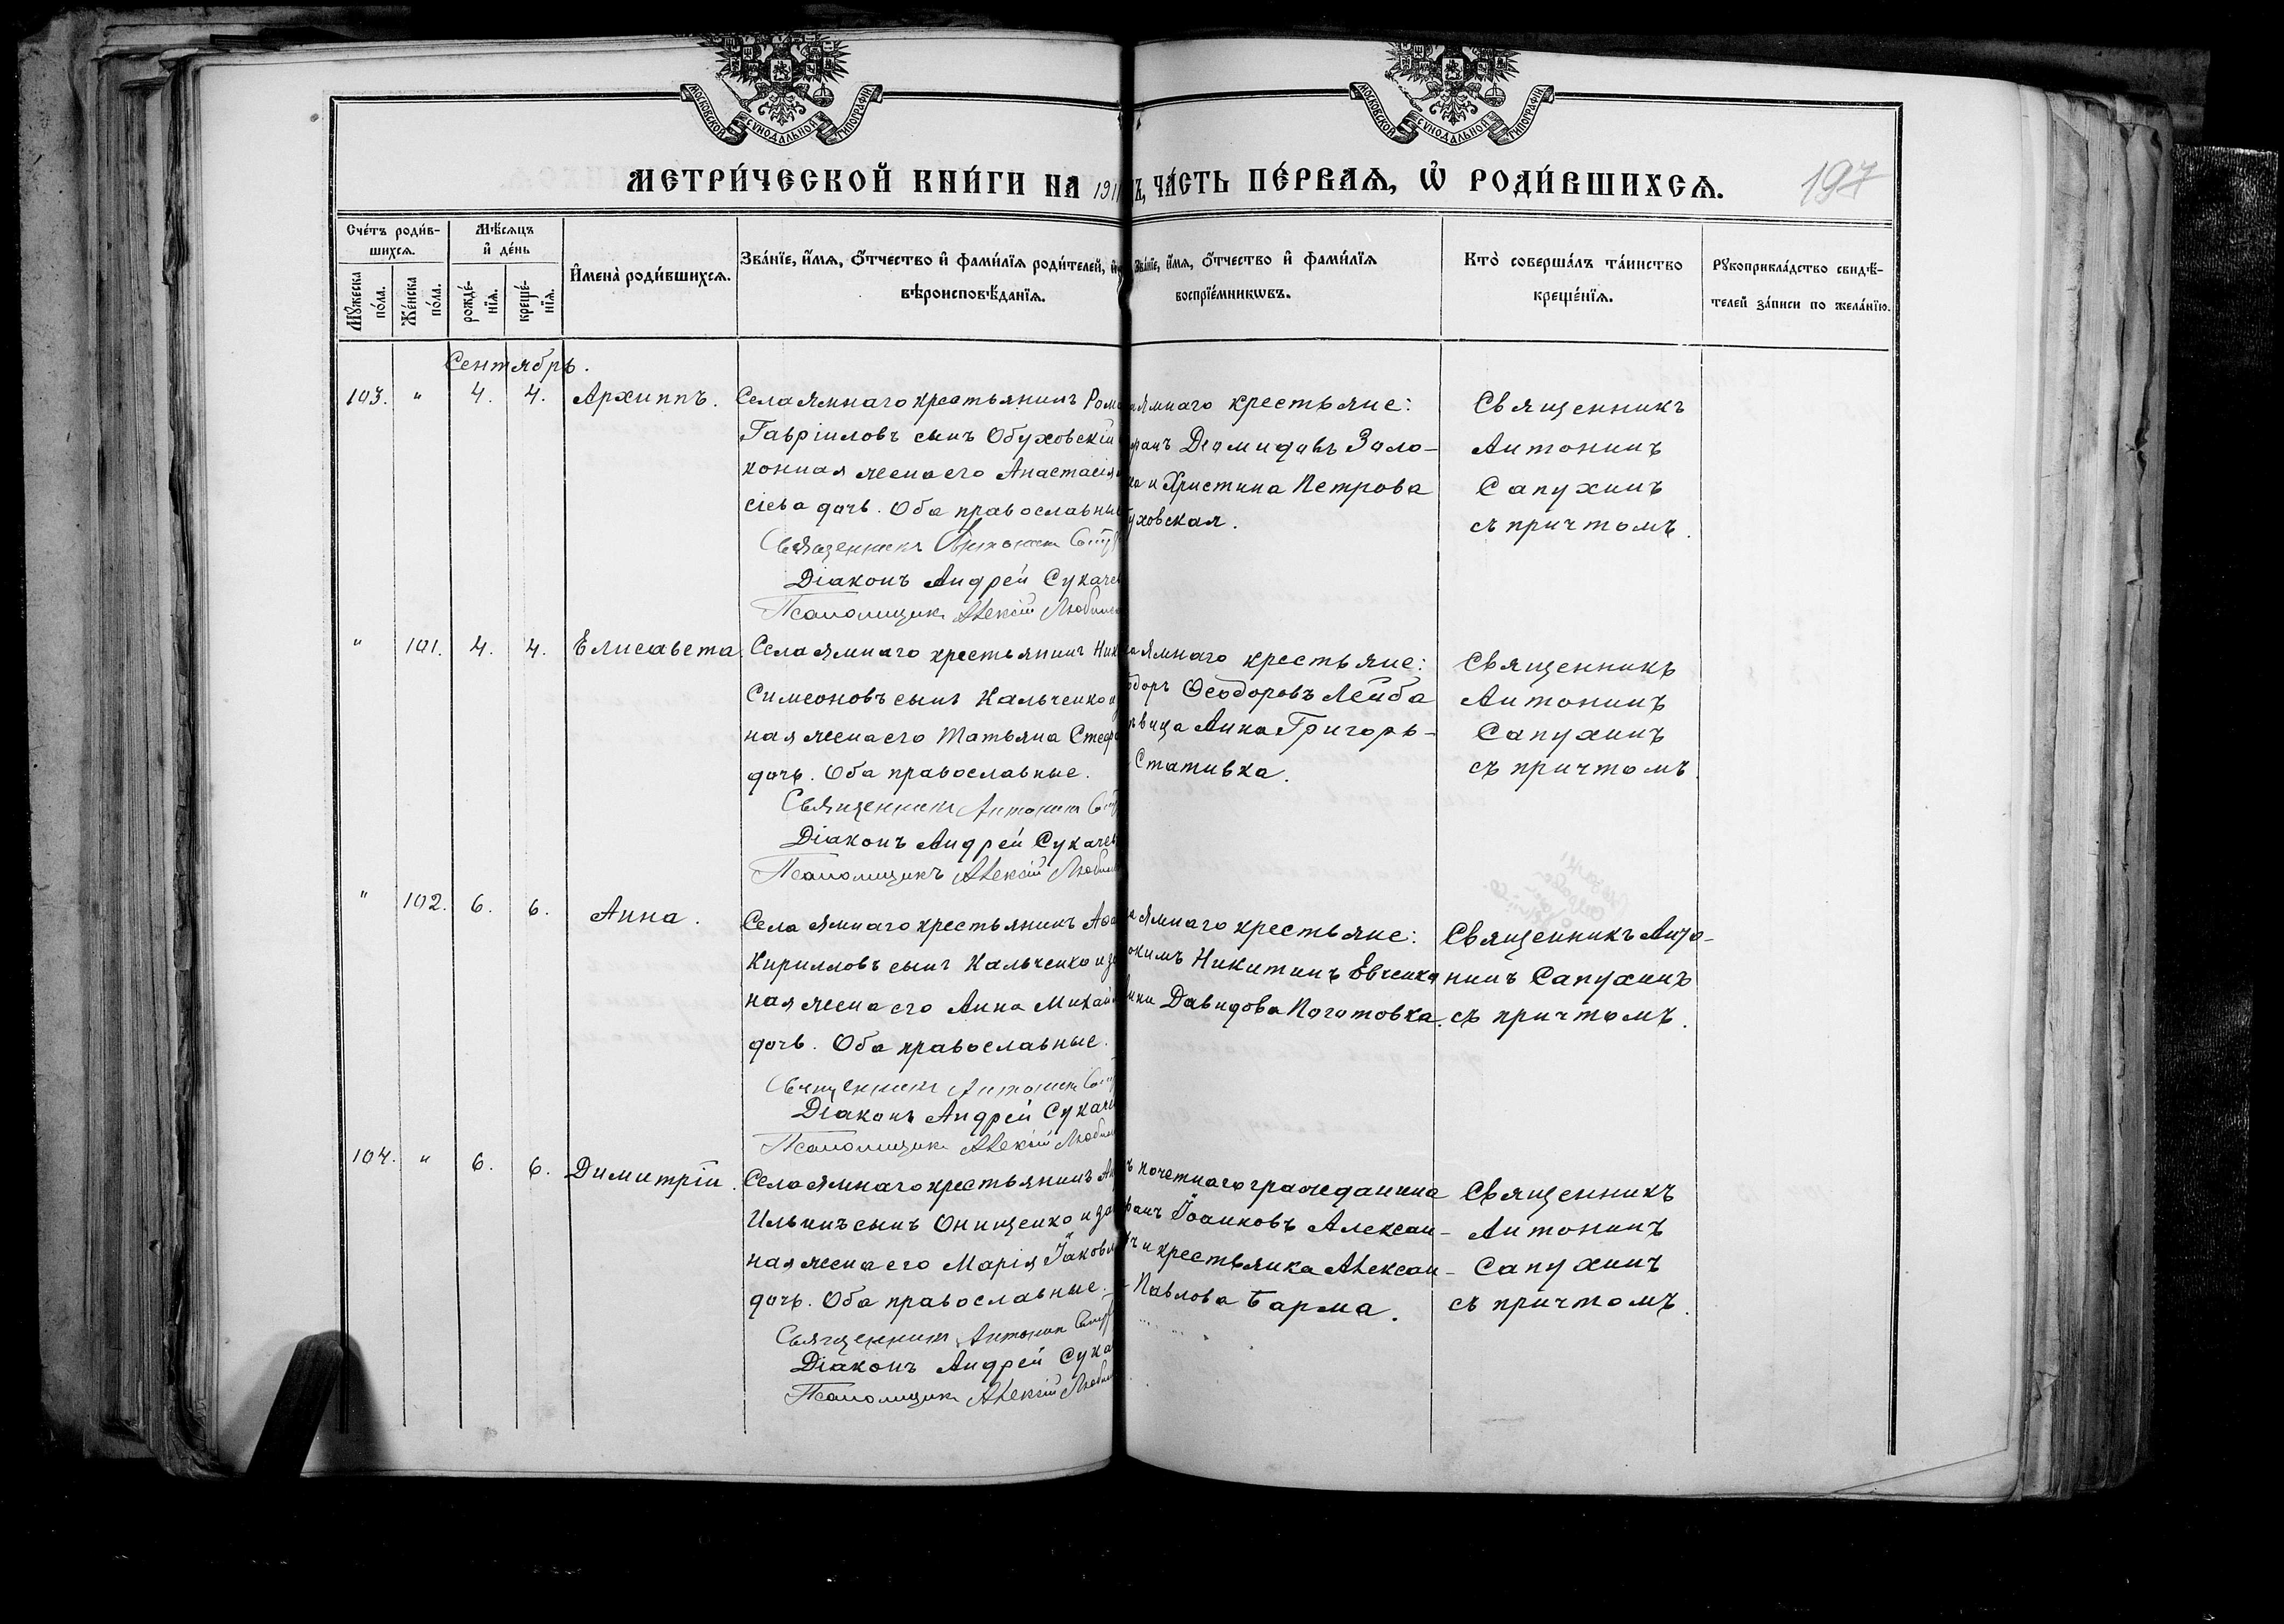 МОСКОВСКОЙ СѴНОДАЛЬНОЙ ТИПОГРАФІИ
МОСКОВСКОЙ СѴНОДАЛЬНОЙ ТИПОГРАФІИ
МЕТРИ́ЧЕСКОЙ КНИ́ГИ НА 191
Ъ, ЧА́СТЬ ПЕ́РВАѦ, Ѡ҆ РОДИ́ВШИХСѦ.
197
Сче́тъ роди́в-
шихсѧ.
Мѣ́сѧцъ
и҆ де́нь
Мꙋ́жеска
по́ла.
Же́нска
по́ла.
рожде́-
нїѧ.
креще́-
нїѧ.
И҆мена̀ роди́вшихсѧ.
Зва́нїе, и҆́мѧ, ѻ҆́тчество и҆ фами́лїѧ роди́телей, и҆
вѣроисповѣ́данїѧ.
Зва́нїе, и҆́мѧ, ѻ҆́тчество и҆ фами́лїѧ
воспрїе́мникѡвъ.
Кто̀ соверша́лъ та́инство
креще́нїѧ.
Рꙋкоприкла́дство свидѣ́-
телей за́писи по жела́нїю.
Сентябрь.
103. " 4. 4. Архиппъ.
Села Ямнаго крестьянинъ Ром
Гавріиловъ сынъ Обуховскій
конная жена его Анастасія
сіева дочь. Оба православны
Священникъ Антонин Сап
Діаконъ Андрей Сукаче
Псаломщикъ Алексій Любим
а Ямнаго крестьяне:
ранъ Діомидовъ Золо-
ка и Христина Петрова
уховская.
Священникъ
Антонинъ
Сапухинъ
съ причтомъ.
" 101. 4. 4. Елисавета
Села Ямнаго крестьянинъ Ник
Симеоновъ сынъ Кальченко и
ная жена его Татьяна Стеф
дочь. Оба православные.
Священникъ Антонин Сап
Діаконъ Андрей Сукачев
Псаломщикъ Алексій Любим
а Ямнаго крестьяне:
одоръ Ѳеодоровъ Лейба
ѣвица Анна Григорь-
Стативка.
Священникъ
Антонинъ
Сапухинъ
съ причтомъ.
" 102. 6. 6. Анна.
Села Ямнаго крестьянинъ Аѳа
Кирилловъ сынъ Кальченко и за
ная жена его Анна Михай
дочь. Оба православные.
Священникъ Антонин Сап
Діаконъ Андрей Сукаче
Псаломщикъ Алексій Любим
а Ямнаго крестьяне:
окимъ Никитинъ Евченко
Давидова Поготовка.
Священникъ Анто-
нинъ Сапухинъ
съ причтомъ.
104. " 6. 6. Димитрій.
Села Ямнаго крестьянинъ Ан
Ильинъ сынъ Онищенко и за
ная жена его Марія Іаковл
дочь. Оба православные.
Священникъ Антонин Сап
Діаконъ Андрей Сука
Псаломщикъ Алексій Любим
ъ почетнаго гражданина
фанъ Іоанновъ Алексан-
ъ и крестьянка Алексан-
Павлова Барма.
Священникъ
Антонинъ
Сапухинъ
съ причтомъ.